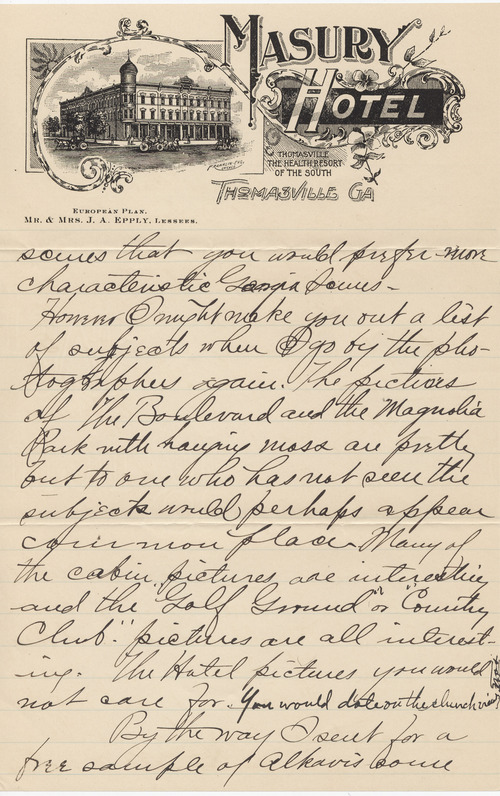 MASURY
HOTEL
THOMASVILLE
THE HEALTH RESORT
OF THE SOUTH
THOMASVILLE GA
EUROPEAN PLAN.
MR. & MRS. J. A. EPPLY, LESSEES.
scenes that you would prefer more
characteristic Georgia scenes –
However I might make you out a list
of subjects when I go by the pho-
tographers again. The pictures
of The Boulevard and the Magnolia
Park with hanging moss are pretty
but to one who has not seen the
subjects would perhaps appear
common place. Many of
the cabin pictures are interesting
and the "Golf Ground" or "Country
Club" pictures are all interest-
ing. The Hotel pictures you would
not care for. You would dote on the church views
By the way I sent for a
free sample of Alkavis some